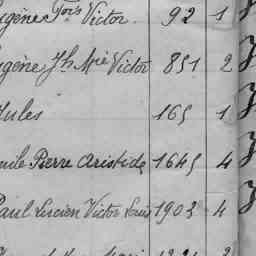 ugène Fois Victor 92 1
ugène Jh Mie Victor 851 2
Jules 165 1
mile Pierre Aristide 1645 4
Paul Lucien Victor Louis 1903 4